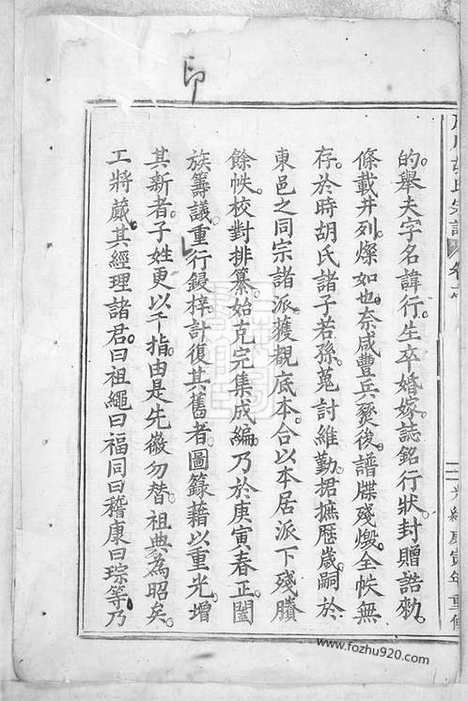 印
氏宗譜
光緒庚寅年重修
的舉夫字名諱行生卒婚嫁誌銘行狀封贈誥勑
條載井列燦如也奈咸豐兵燹後譜牒殘燬全帙無
存於時胡氏諸子若孫蒐討維勤捃摭歷歲嗣於
東邑之同宗諸派獲覩底本合以本居派下殘賸
餘帙校對排纂始克完集成編乃於庚寅春正闔
族籌議重行鋟梓計復其舊者圖籙藉以重光增
其新者子姓更以千指由是先徽勿替祖典為昭矣
工將蕆其經理諸君曰祖繩曰福同曰稽康曰琮等乃
www.fozhu920.com